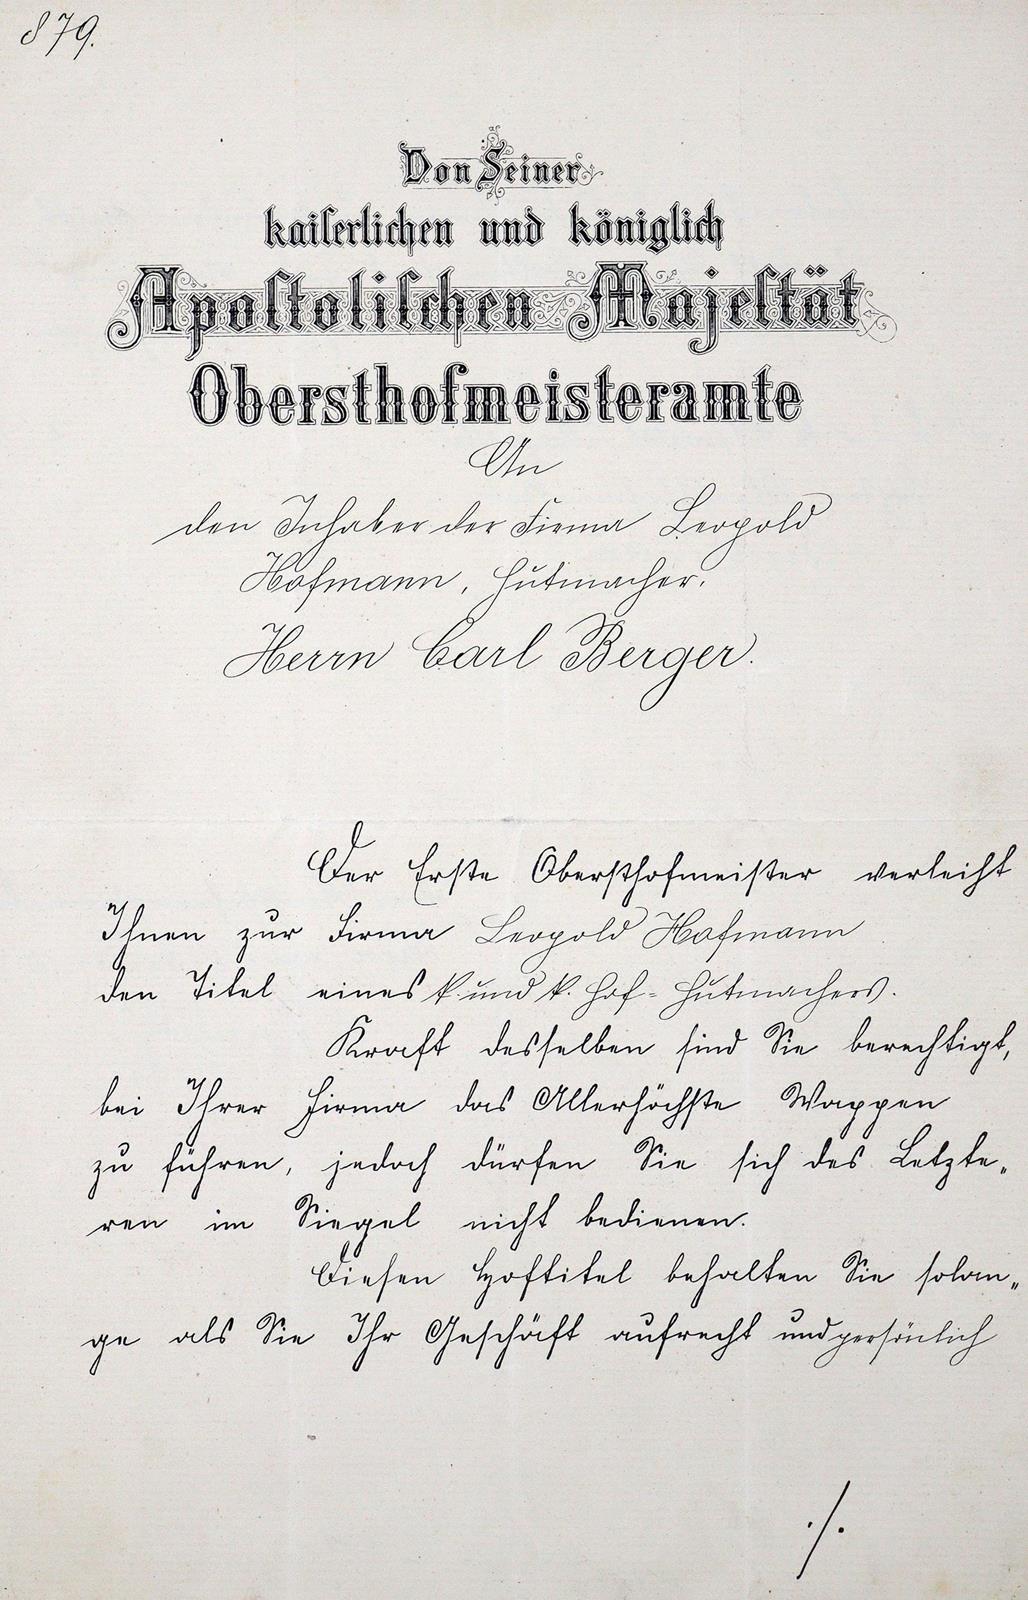 879.
Von Seiner
kaiserlichen und königlich
Apostolischen Majestät
Obersthofmeisteramte
An
den Inhaber der Firma Leopold
Hofmann, Hutmacher.
Herrn Carl Berger.
Der Erste Obersthofmeister verleiht
Ihnen zur Firma Leopold Hofmann
den Titel eines k. und k. Hof- Hutmachers.
Kraft desselben sind Sie berechtigt,
bei Ihrer Firma das Allerhöchste Wappen
zu führen, jedoch dürfen Sie sich des Letzte„
ren im Siegel nicht bedienen.
Diesen Hoftitel behalten Sie solan„
ge als Sie Ihr Geschäft aufrecht und persönlich
./.